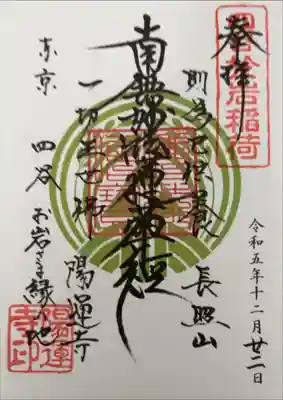 奉拝
四谷於岩稲荷
則為已供養
長照山
令和五年十二月廿二日
南無妙法蓮華経
一切三世諸
陽運寺
東京 四谷 お岩さま縁の地
陽運寺印